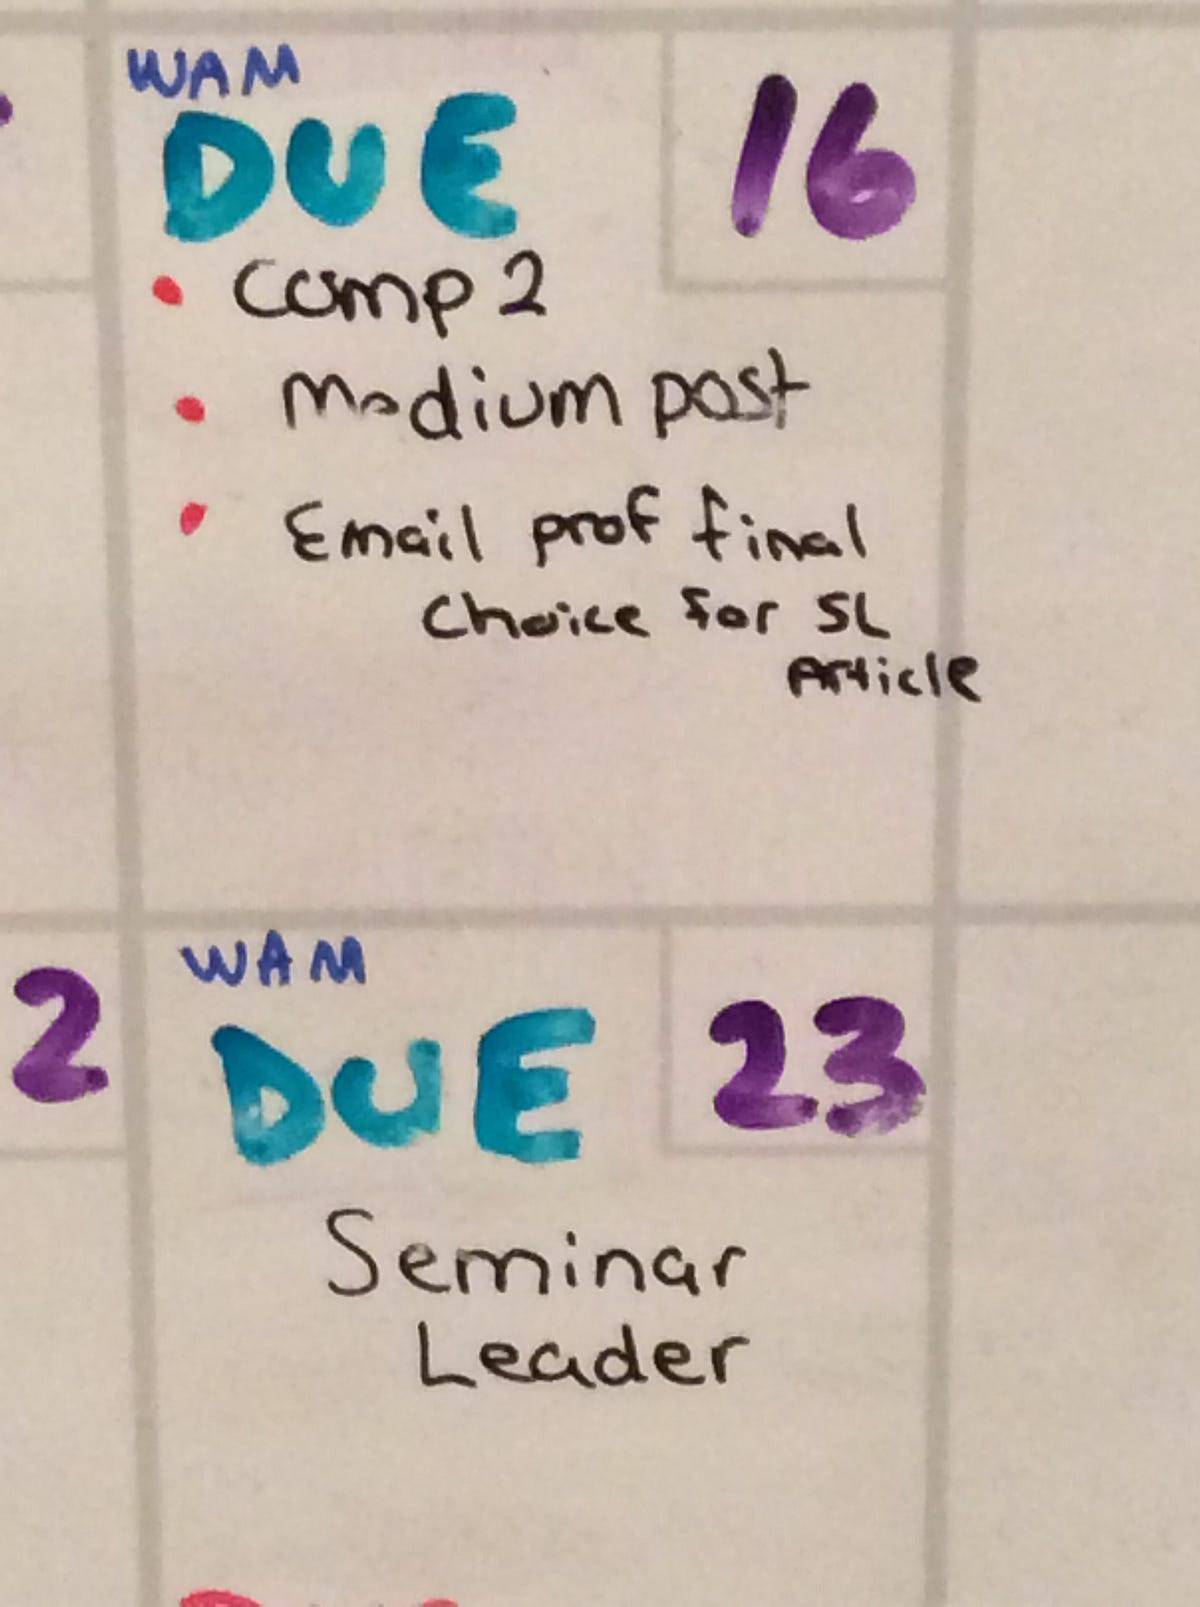 WAM
DUE 16
• Comp 2
• Medium post
• Email prof final
choice for SL
Article
2 WAM
DUE 23
Seminar
Leader